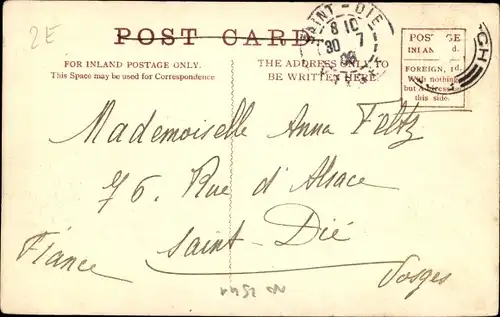 2E
POST CARD.
SAINT-DIÉ
8 10
30 7
FOR INLAND POSTAGE ONLY.
This Space may be used for Correspondence
THE ADDRESS ONLY TO
BE WRITTEN HERE.
POSTAGE
INLAND d.
FOREIGN, 1d.
With nothing
but Address on
this side.
GH
Mademoiselle Anna Feltz
76. Rue d'Alsace
Saint-Dié
France
Vosges